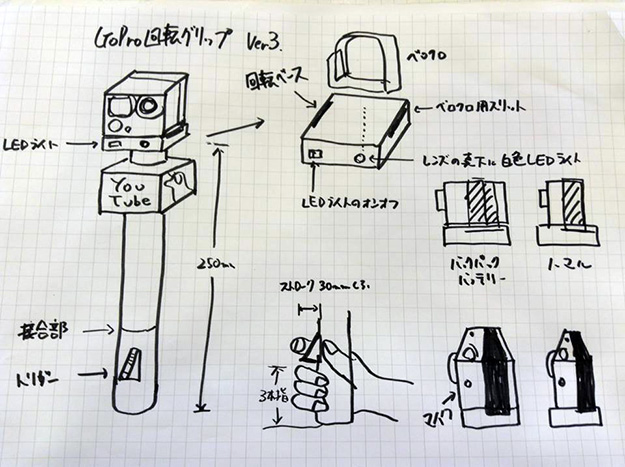 GoPro回転グリップ Ver3.
ベロクロ
回転ベース
ベロクロ用スリット
LEDライト
レンズの真下に白色LEDライト
LEDライトのオンオフ
You
Tube
250mm
バックパック
バッテリー
ノーマル
ストローク 30mmくらい
接合部
トリガー
3本指